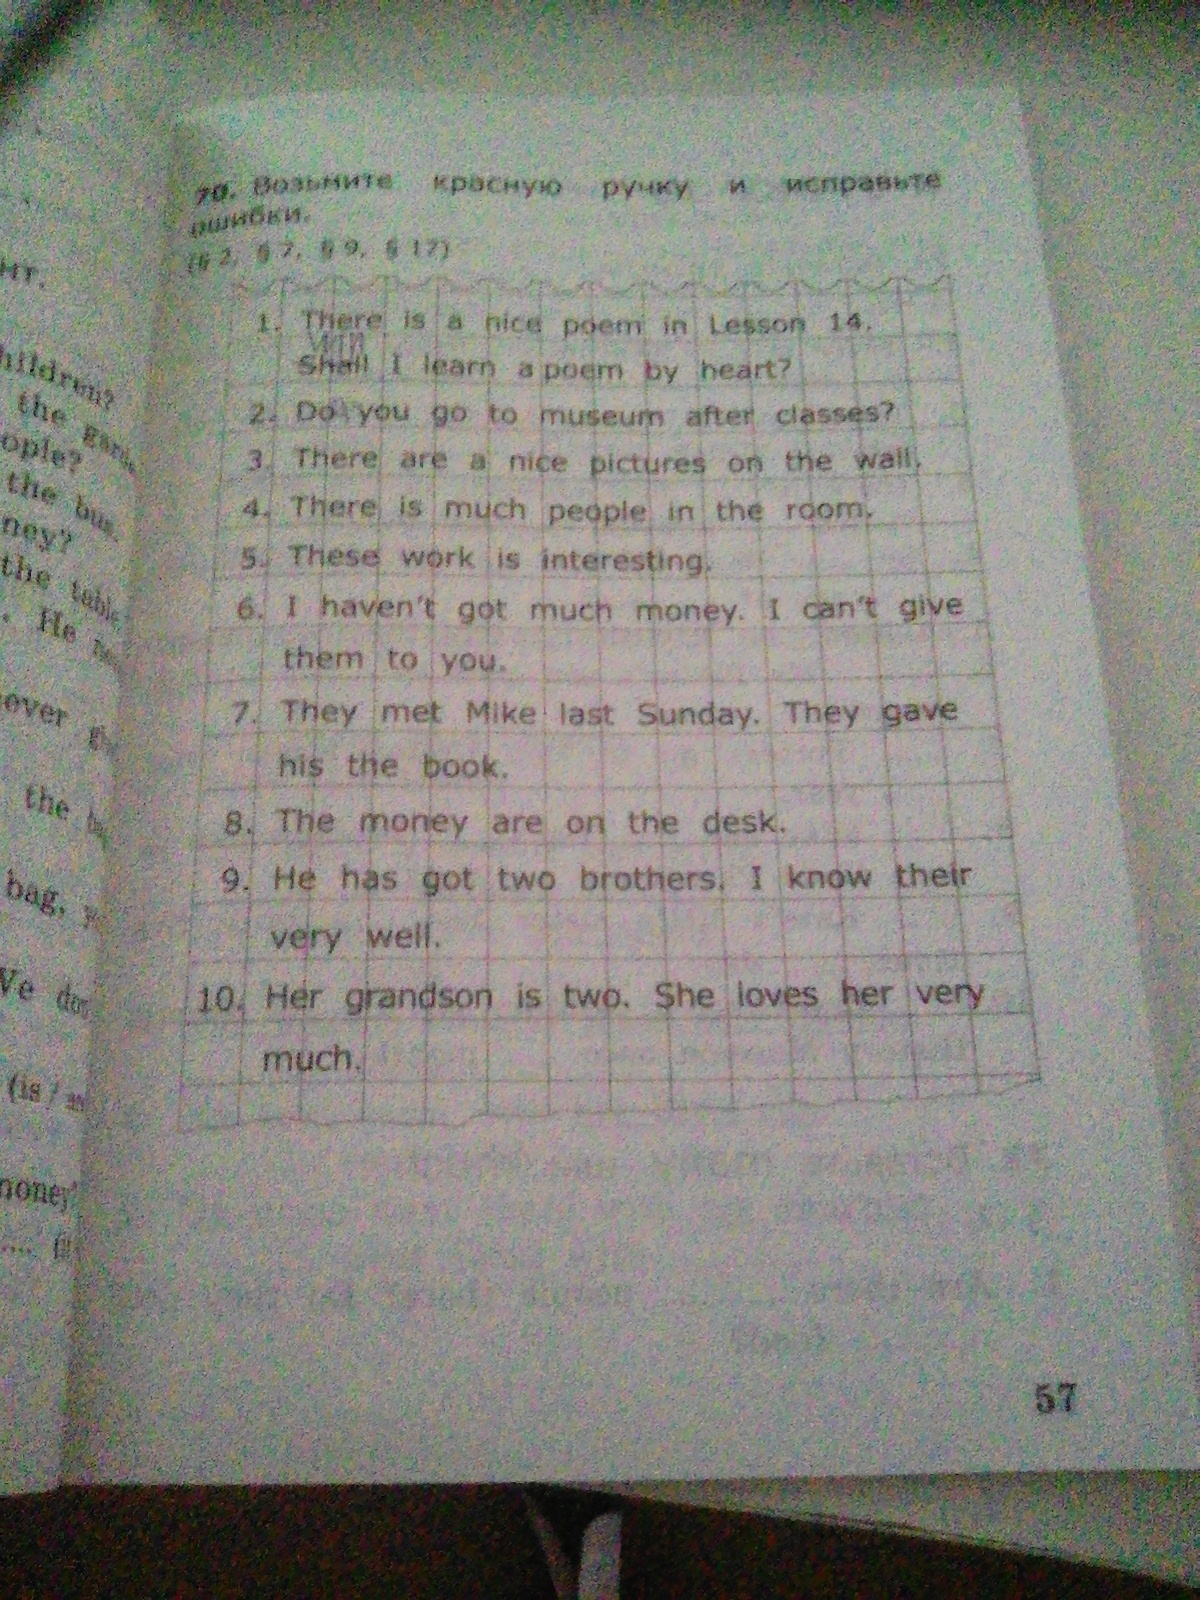 70. Возьмите красную ручку и исправьте
ошибки.
(§ 2, § 7, § 9, § 17)
1. There is a nice poem in Lesson 14.
Shall I learn a poem by heart?
2. Do you go to museum after classes?
3. There are a nice pictures on the wall.
4. There is much people in the room.
5. These work is interesting.
6. I haven't got much money. I can't give
them to you.
7. They met Mike last Sunday. They gave
his the book.
8. The money are on the desk.
9. He has got two brothers. I know their
very well.
10. Her grandson is two. She loves her very
much.
57
нт.
children?
the
ople?
the bus.
ney?
the table.
. He
over
the
bag.
We
(is /
money